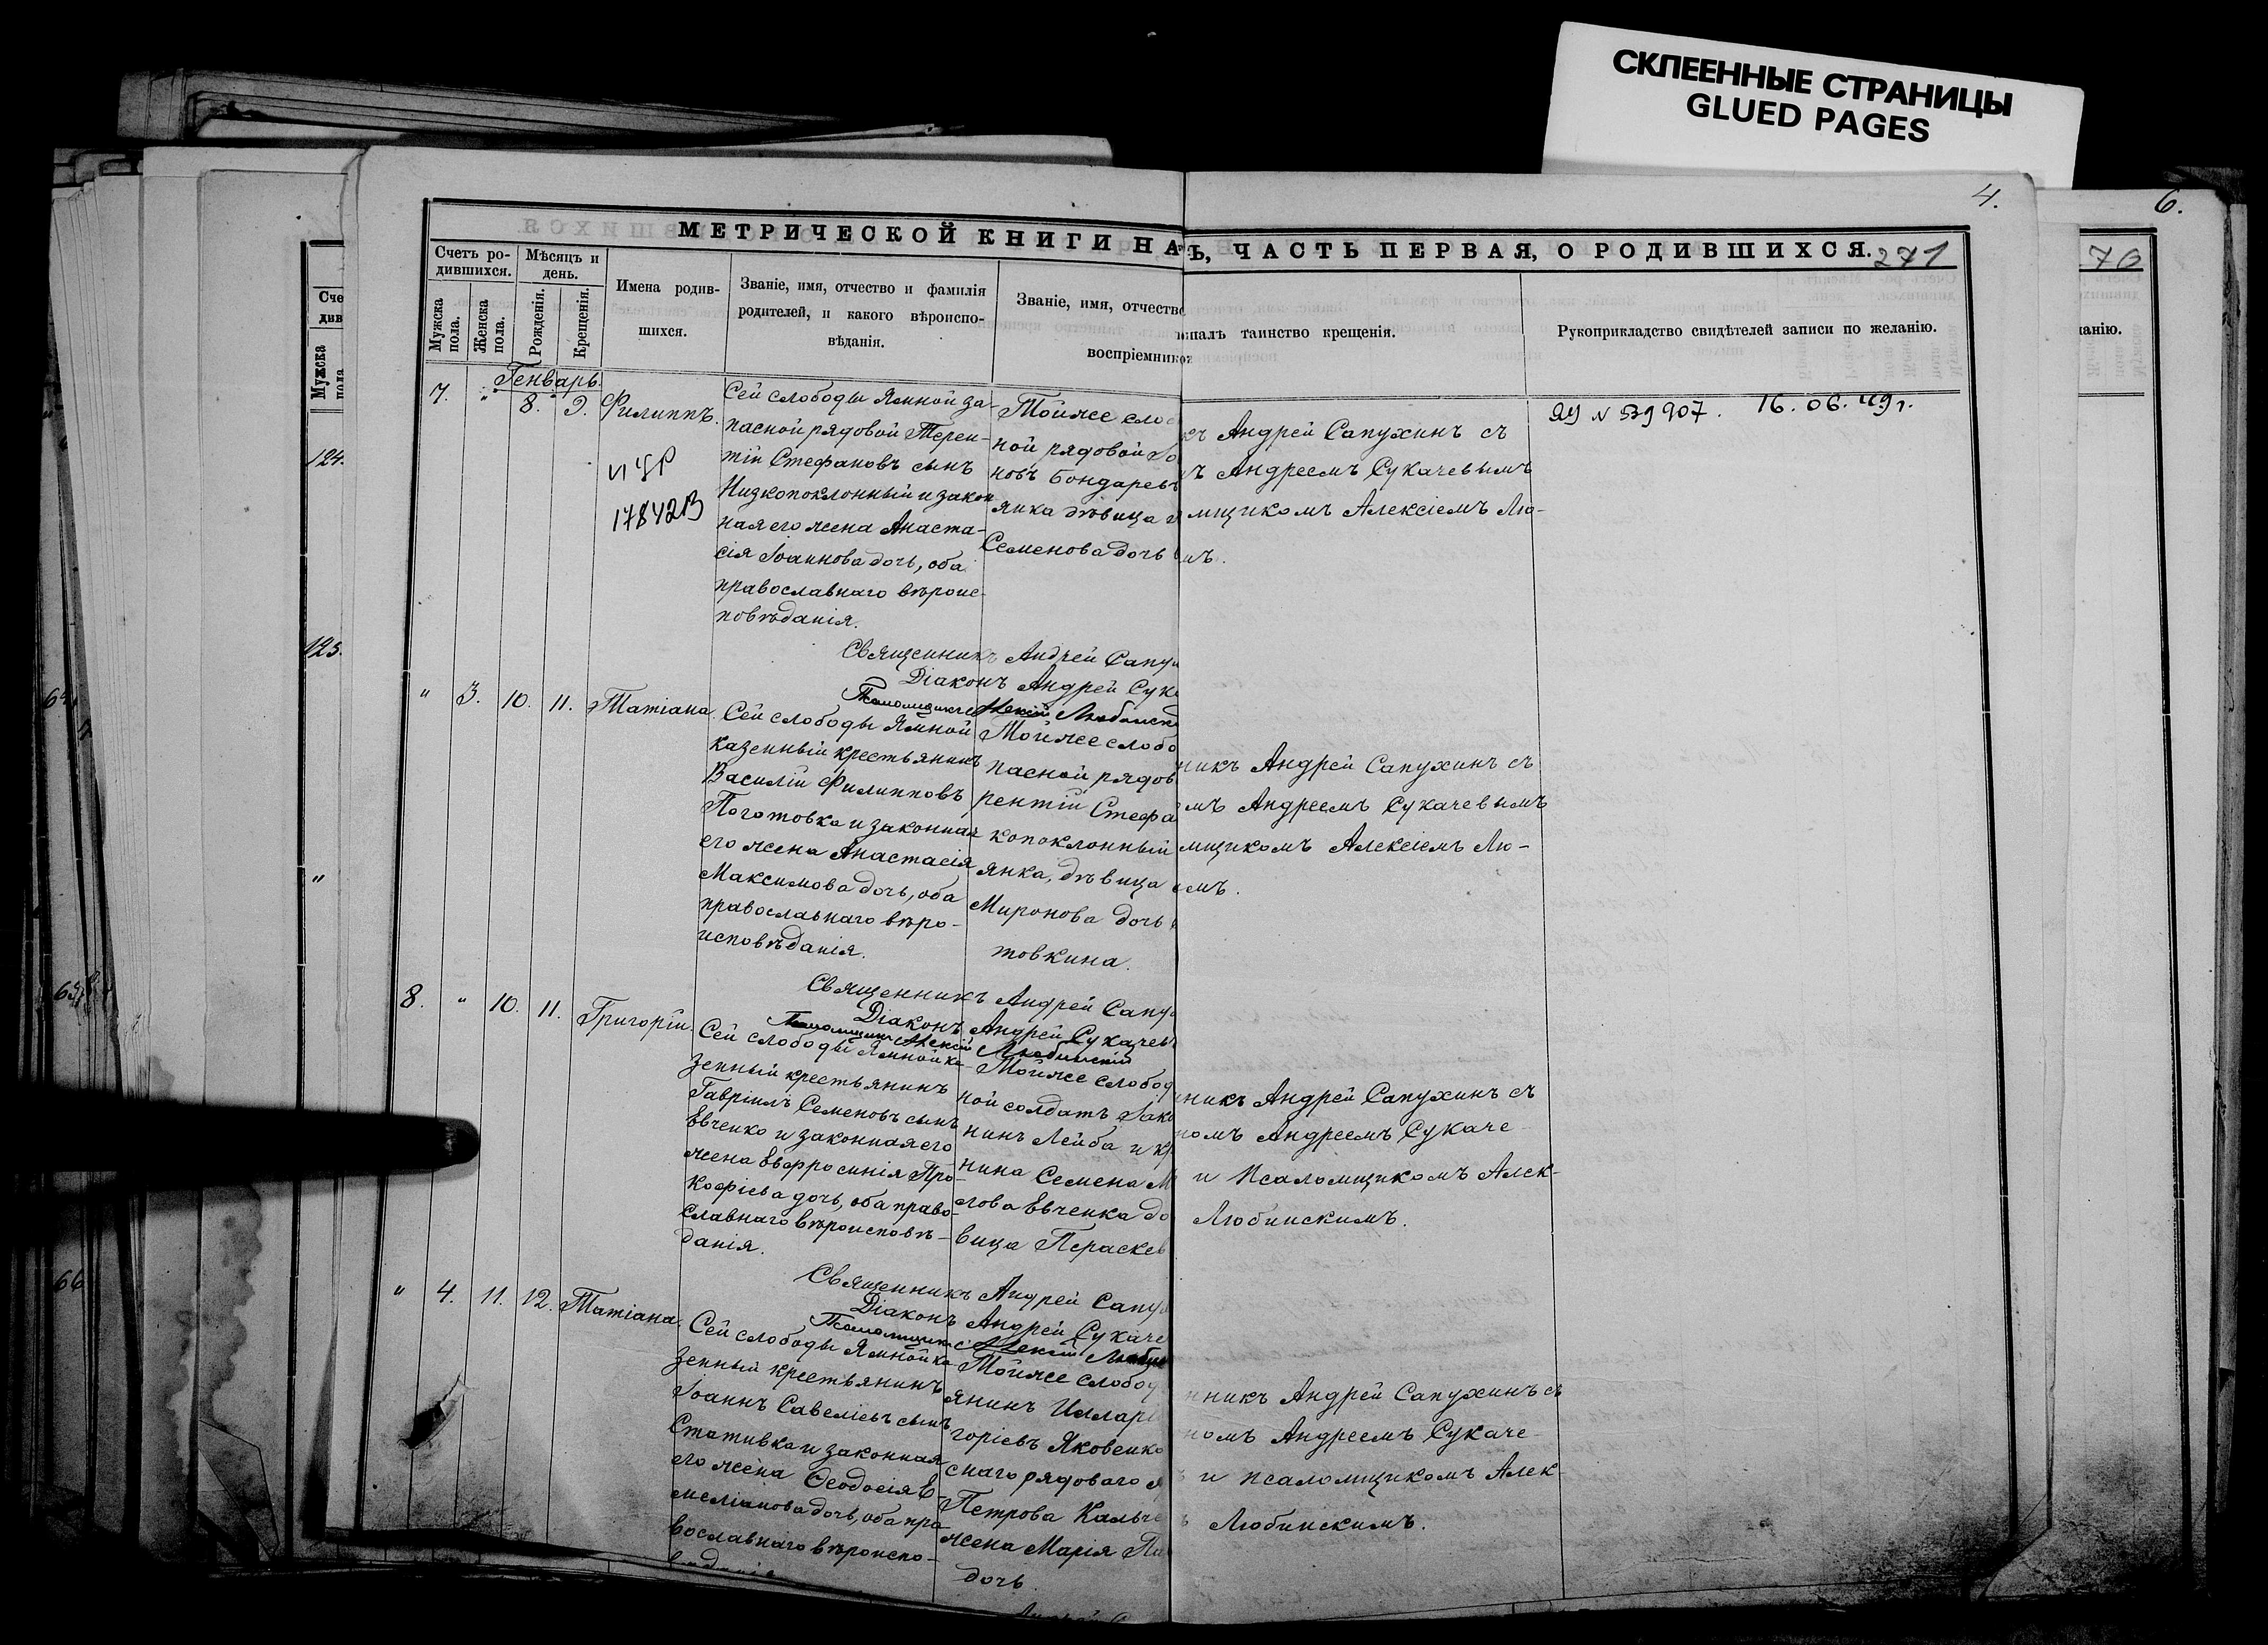 СКЛЕЕННЫЕ СТРАНИЦЫ
GLUED PAGES
4.
6.
МЕТРИЧЕСКОЙ КНИГИ НА
Ъ, ЧАСТЬ ПЕРВАЯ, О РОДИВШИХСЯ.
271
70
Счетъ ро-
дившихся.
Мужска
пола.
Женска
пола.
Мѣсяцъ и
день.
Рожденія.
Крещенія.
Имена родив-
шихся.
Званіе, имя, отчество и фамилія
родителей, и какого вѣроиспо-
вѣданія.
Званіе, имя, отчество
воспріемников
таинство крещенія.
Рукоприкладство свидѣтелей записи по желанію.
анію.
Сче
див
Мужска
пола
124.
125.
"
66
Генварь.
7. " 8. 9. Филиппъ.
17842В
Сей слободы Ямной за-
пасной рядовой Терен-
тій Стефановъ сынъ
Низкопоклонный и закон
ная его жена Анаста-
сія Іоаннова дочь, оба
православнаго вѣроис-
повѣданія.
Тойже сло
ной рядовой
новъ Бондаревъ
янка дѣвица
Семенова дочь
къ Андрей Сапухинъ съ
ъ Андреемъ Сукачевымъ
мщикомъ Алексіемъ Лю-
мъ.
ЯУ N 539907. 16.06.49 г.
Священникъ Андрей Сапу
Діаконъ Андрей Сук
Псаломщикъ Алексій Любинск
" 3. 10. 11. Татіана.
Сей слободы Ямной
казенный крестьянинъ
Василій Филипповъ
Поготовка и законная
его жена Анастасія
Максимова дочь, оба
православнаго вѣро-
исповѣданія.
Тойже слобо
пасной рядов
рентій Стефа
копоклонный
янка, дѣвица
Миронова дочь
товкина.
никъ Андрей Сапухинъ съ
мъ Андреемъ Сукачевымъ
мщикомъ Алексіемъ Лю-
емъ.
Священникъ Андрей Сапу
Діаконъ Андрей Сукачев
Псаломщикъ Алексій Любинскій
8. " 10. 11. Григорій.
Сей слободы Ямной ка-
зенный крестьянинъ
Гавріилъ Семеновъ сынъ
Евченко и законная его
жена Евфросинія Про-
кофіева дочь, оба право-
славнаго вѣроисповѣ-
данія.
Тойже слобод
ной солдатъ Іако
нинъ Лейба и кр
нина Семена М
лова Евченка до
вица Параскев
никъ Андрей Сапухинъ съ
номъ Андреемъ Сукаче-
и Псаломщикомъ Алек-
Любинскимъ.
Священникъ Андрей Сапу
Діаконъ Андрей Сукаче
Псаломщикъ Алексій Любин
" 4. 11. 12. Татіана.
Сей слободы Ямной ка-
зенный крестьянинъ
Іоаннъ Савеліевъ сынъ
Стативка и законная
его жена Ѳеодосія Е-
меліанова дочь, оба пра-
вославнаго вѣроиспо-
Тойже слобод
янинъ Иллар
горіевъ Яковенко
снаго рядоваго
Петрова Кальче
жена Марія Па
дочь
нникъ Андрей Сапухинъ съ
номъ Андреемъ Сукаче-
и псаломщикомъ Алек-
Любинскимъ.